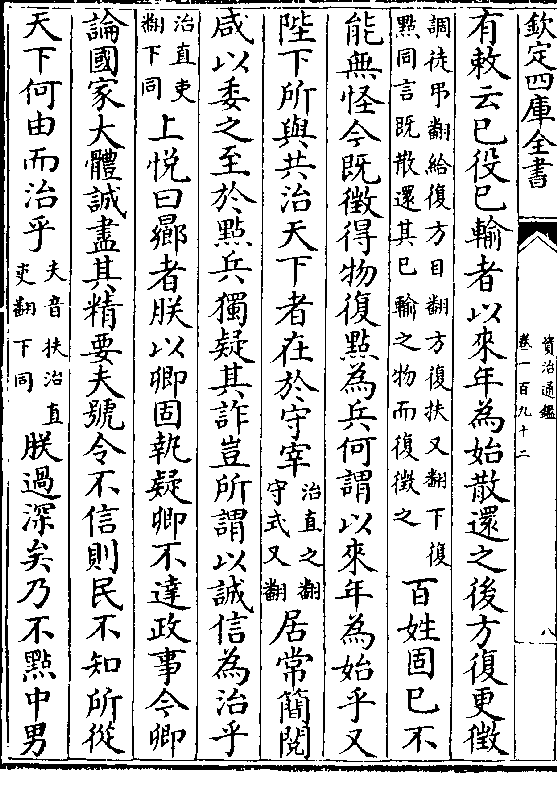 欽定四庫全書
資治通鑑
卷一百九十二
八
有敕云已役已輸者以來年為始散還之後方復更徵
調徒弔翻給復方目翻方復扶又翻下復
點同言既散還其已輸之物而復徵之
百姓固已不
能無怪今既徵得物復點為兵何謂以來年為始乎又
陛下所與共治天下者在於守宰
治直之翻
守式又翻
居常簡閱
咸以委之至於點兵獨疑其詐豈所謂以誠信為治乎
治直吏
翻下同
上悅曰曏者朕以卿固執疑卿不達政事今卿
論國家大體誠盡其精要夫號令不信則民不知所從
天下何由而治乎
夫音扶治直
吏翻下同
朕過深矣乃不點中男